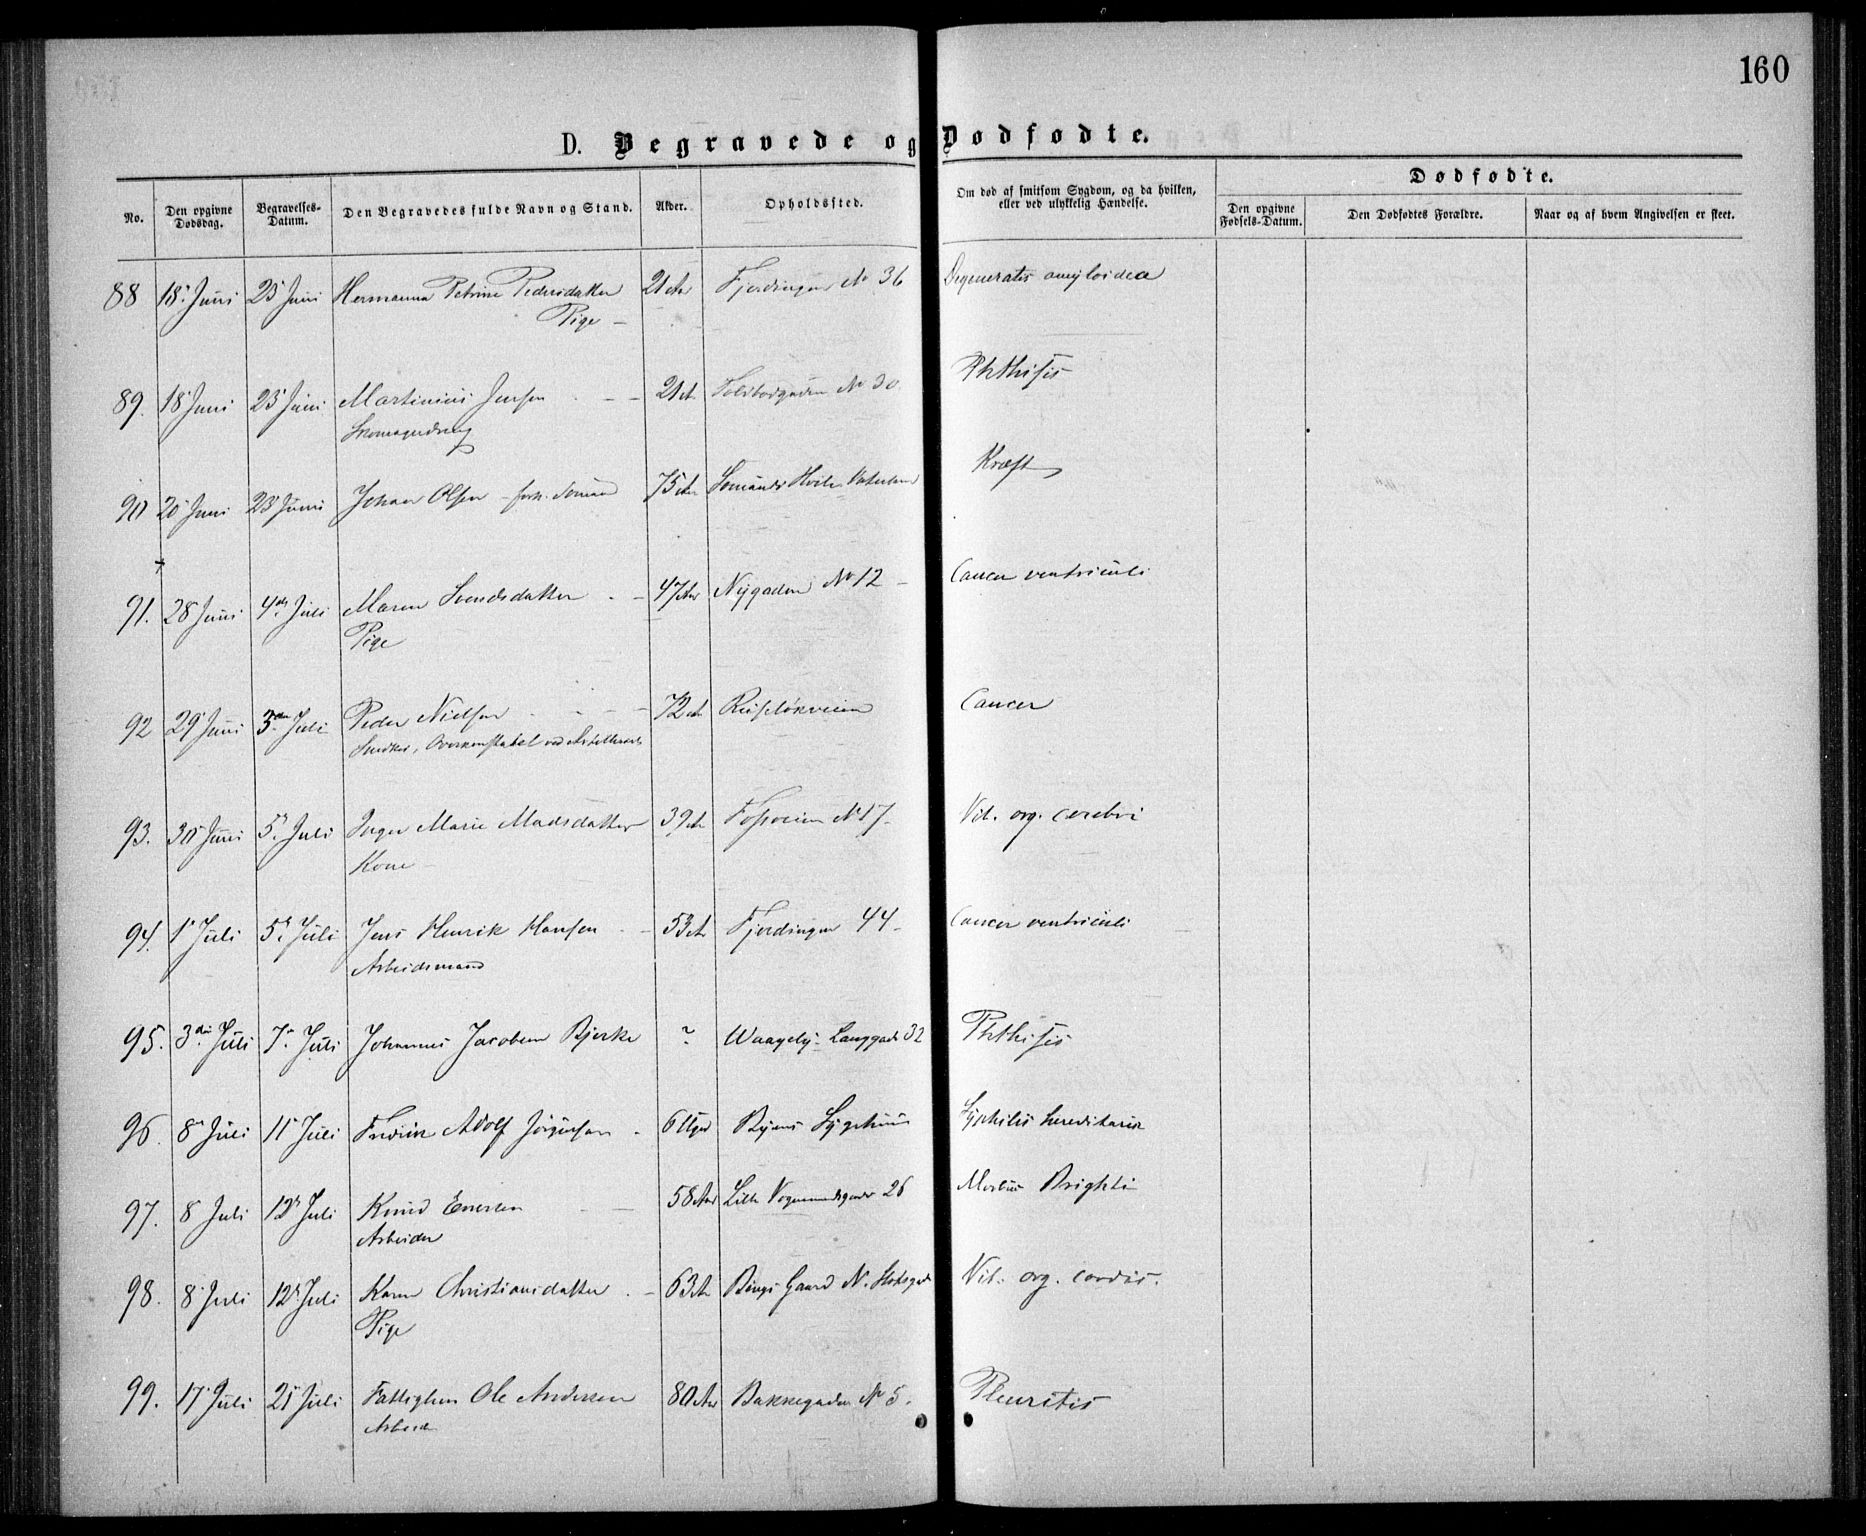 160
D. Begravede og Dødfødte.
No. Den opgivne Dødsdag. Begravelses-Datum. Den Begravedes fulde Navn og Stand. Alder. Opholdssted. Om død af smitsom Sygdom, og da hvilken, eller ved ulykkelig Hændelse. Dødfødte.
Den opgivne Fødsels-Datum. Den Dødfødtes Forældre. Naar og af hvem Angivelsen er skeet.
88 18 Juni 23 Juni Hermanna Petrine Pedersdatter 21 Aar Fjerdingen No 36 Degeneratio amyloidea
Pige
89. 18 Juni 23 Juni Martinius Jensen 21 A Toldbodgaden No 30 Phthisis
Skomagerdreng
90 20 Juni 23 Juni Johan Olsen forh. Sømand 75 Aar Sømands Hvile Vaterland Kræft
91. 28 Juni 4de Juli Maren Svendsdatter 47 Aar Nygaden No 12 Cancer ventriculi
Pige
92 29 Juni 3die Juli Peder Nielsen 72 A Ruseløkveien Cancer
Snedker, Overkonstabel ved Artilleriet
93. 30 Juni 5 Juli Inger Marie Madsdatter 39 A Fossveien No 17 Vit. org. cerebri
Kone
94. 1 Juli 5 Juli Jens Henrik Hansen 53 A Fjerdingen 44 Cancer ventriculi
Arbeidsmand
95. 3die Juli 7 Juli Johannes Jacobsen Bjerke ? Waageby Langgade 32 Phthisis
96. 8 Juli 11 Juli Fredrik Adolf Jörgensen 6 Uger Byens Sygehuus Syphilis hereditaria
97. 8 Juli 12 Juli Knud Eversen 58 Aar Lille Vognmandsgade 26 Morbus Brightii
Arbeider
98. 8 Juli 12 Juli Karen Christiansdatter 63 A Bings Gaard N. Slotsgade Vit. org. cordis.
Pige
99. 17 Juli 21 Juli Fattiglem Ole Andersen 80 Aar Bakkegaden No 5. Pleuritis
Arbeider